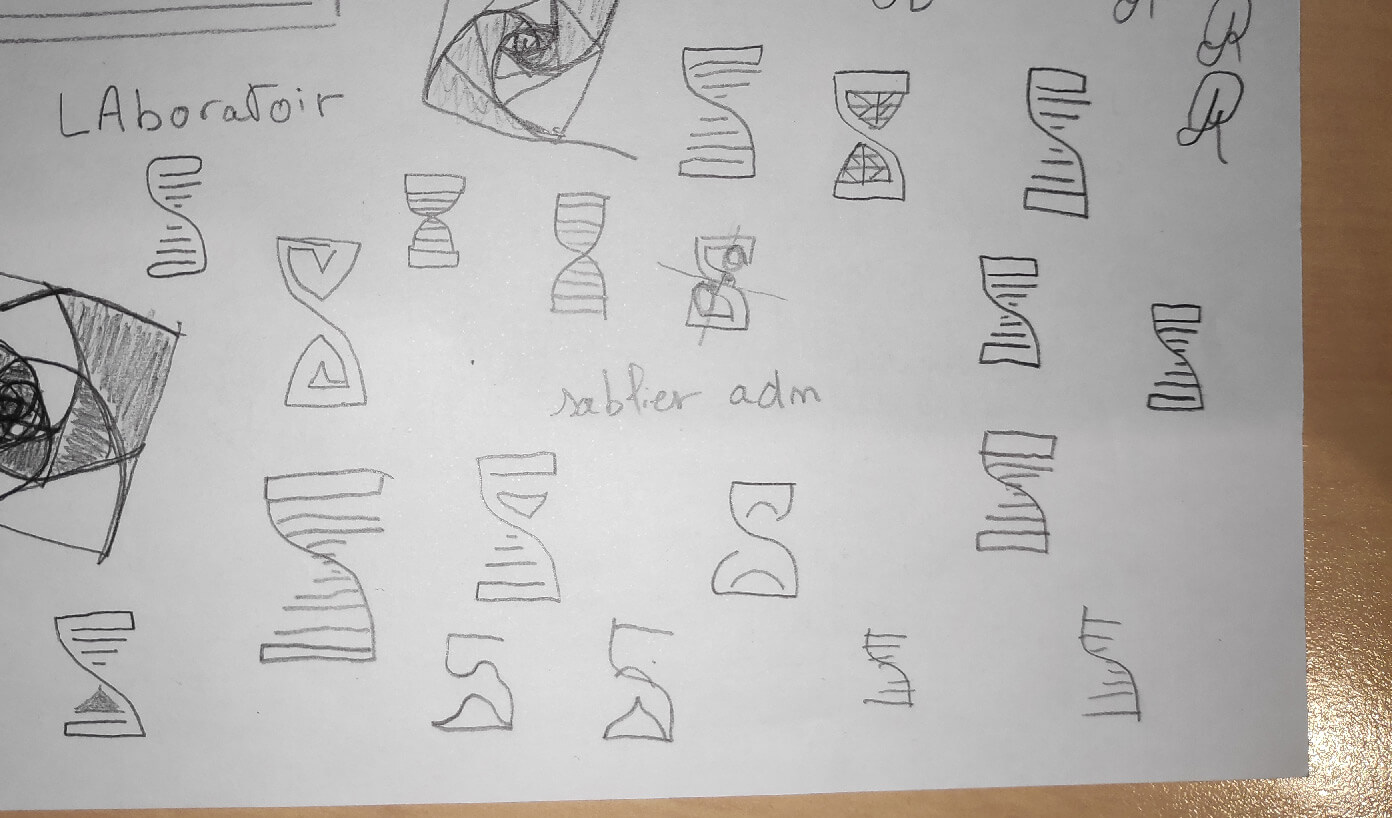 LAboratoir
sablier adn